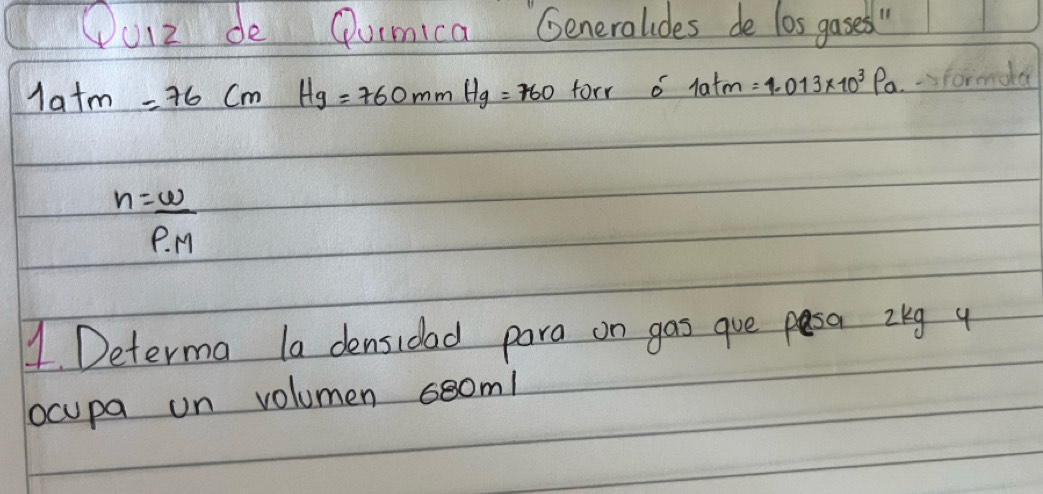 Quiz de Quimica "Generalides de los gases"
1atm = 76 Cm Hg = 760mm Hg = 760 torr ó 1atm = 1.013x10³ Pa. → formula
n = w
P.M
1. Determa la densidad para un gas que pesa 2kg y
ocupa un volumen 680ml